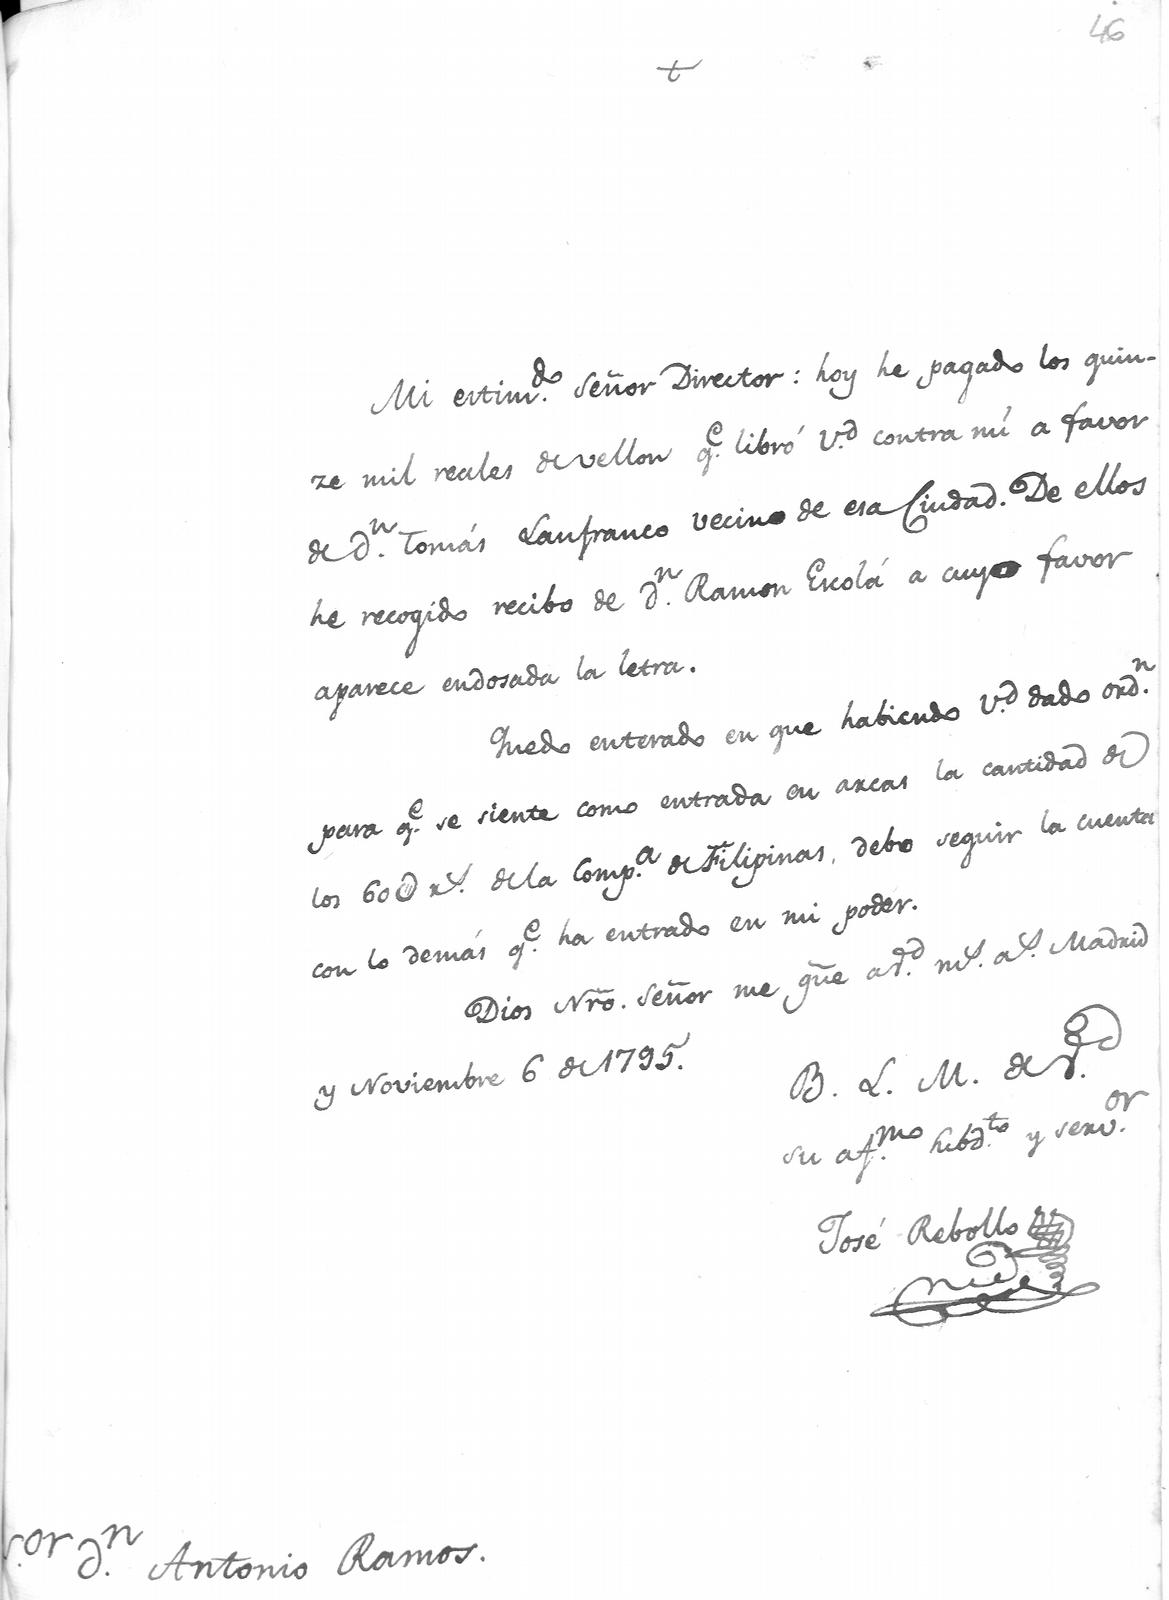 46
t
Mi estim.do Señor Director: hoy he pagado los quin-
ze mil reales de vellon q.e libró V.d contra mí a favor
de D.n Tomás Lanfranco vecino de esa Ciudad. De ellos
he recogido recibo de D.n Ramon Escolá a cuyo favor
aparece endosada la letra.
Quedo enterado en que habiendo V.d dado ord.n
para q.e se siente como entrada en arcas la cantidad de
los 60@ r.s de la Comp.a de Filipinas, debo seguir la cuenta
con lo demás q.e ha entrado en mi poder.
Dios Nrõ. Señor me gũe a V.d m.s a.s Madrid
y Noviembre 6 de 1795.
B. L. M. de V.d
su af.mo subd.to y serv.or
José Rebollo
S.or D.n Antonio Ramos.